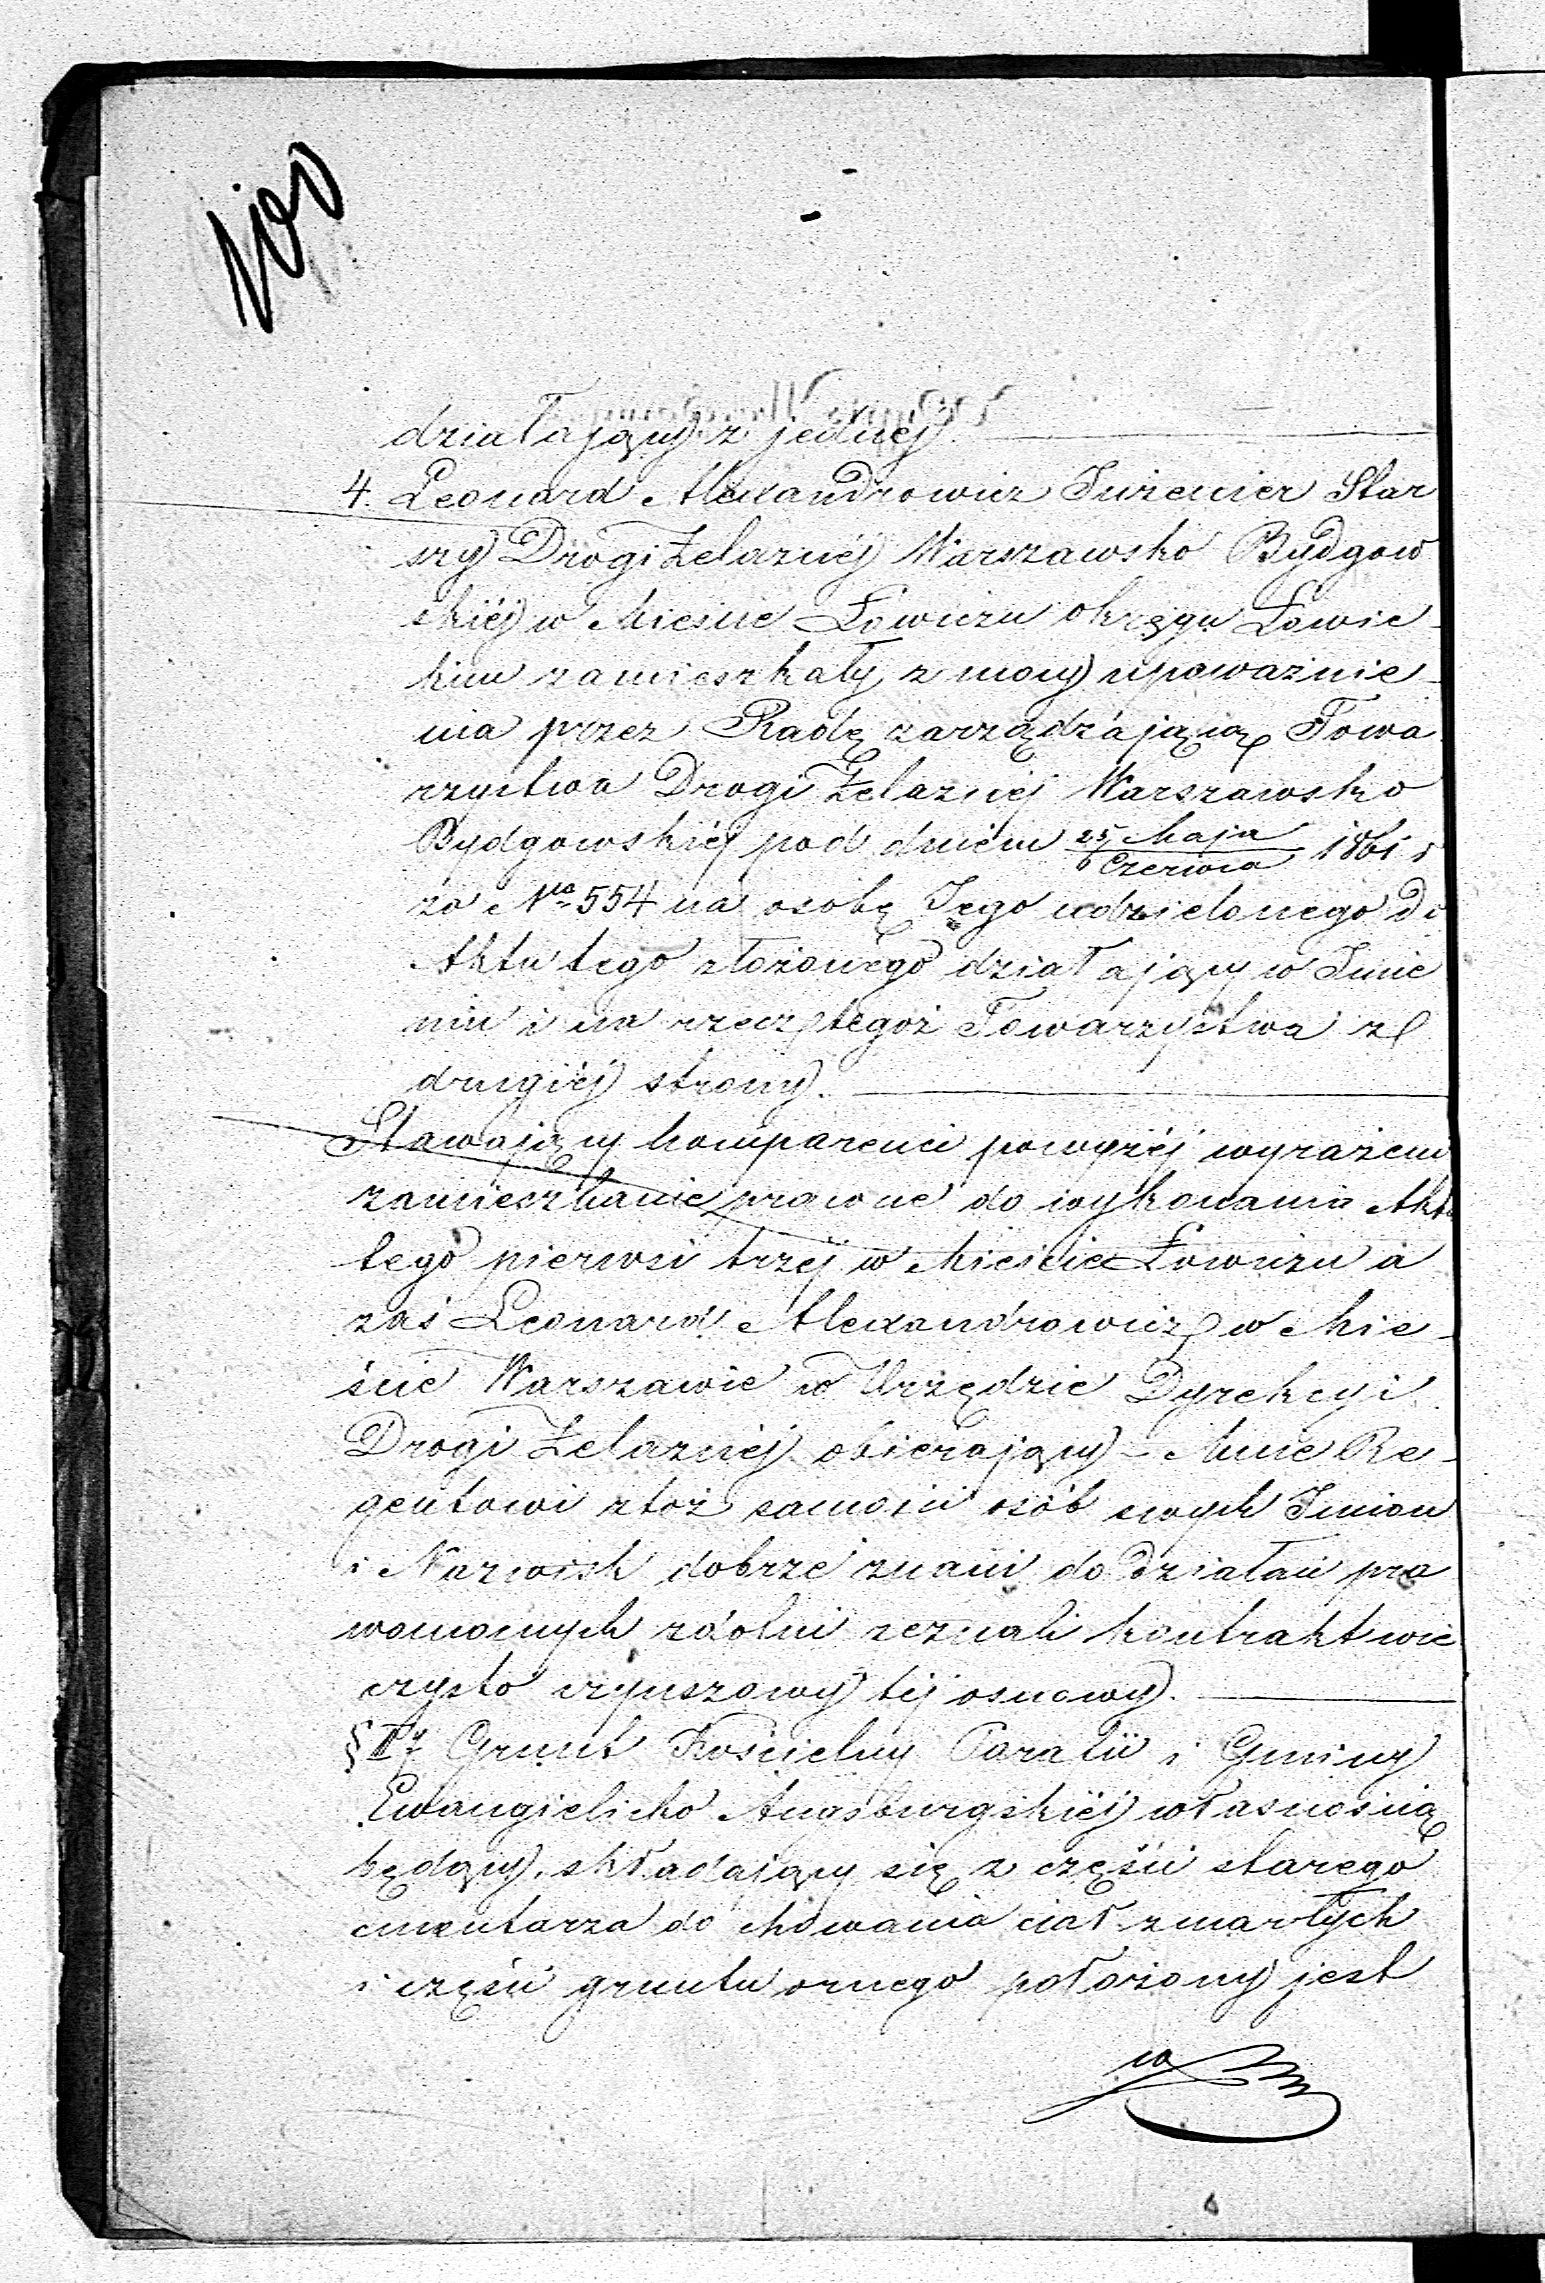 100
działający z jednéj.
4. Leonard Alexandrowicz Inżenier Star
szy Drogi Żelaznéj Warszawsko Bydgow
skiéj w Mieście Łowiczu okręgu Łowic-
kim zamieszkały, z mocy upoważnie-
nia przez Radę zarządzającą Towa
rzystwa Drogi Żelaznéj Warszawsko
Bydgowskiéj pod dniem 25 Maja / 6 Czerwca 1861 r
za No 554 na osobę Jego udzielonego do
Aktu tego złożonego działający w Imie
niu i na rzecz tegoż Towarzystwa z
drugiéj strony.
Stawający komparenci powyżéj wyrażeni
zamieszkanie prawne do wykonania Aktu
tego pierwsi trzéj w Mieście Łowiczu a
zaś Leonard Alexandrowicz w Mie-
ście Warszawie w Urzędzie Dyrekcyi
Drogi Żelaznéj obierający – Mnie Re-
gentowi z toż samości osób swych Imion
i Nazwisk dobrze znani do działań pra
womocnych zdolni zeznali kontrakt wie
czysto czynszowy téj osnowy.
§ 1 Grunt Kościelny Parafii i Gminy
Ewangielicko Augsburgskiéj własnością
będący, składający się z części starego
cmentarza do chowania ciał zmarłych
i części gruntu ornego położony jest